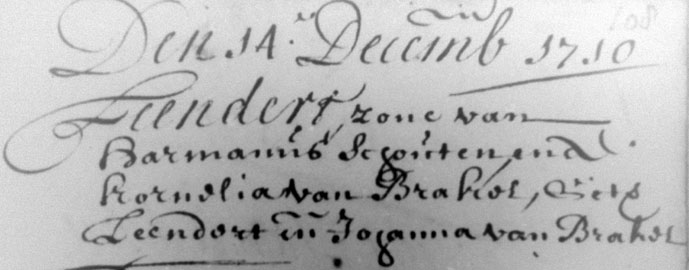 Den 14.en Decemb 1710
Leendert, zone van
Harmanus Schouten, end
Kornelia van Brakel, Get
Leendert en Johanna van Brakel